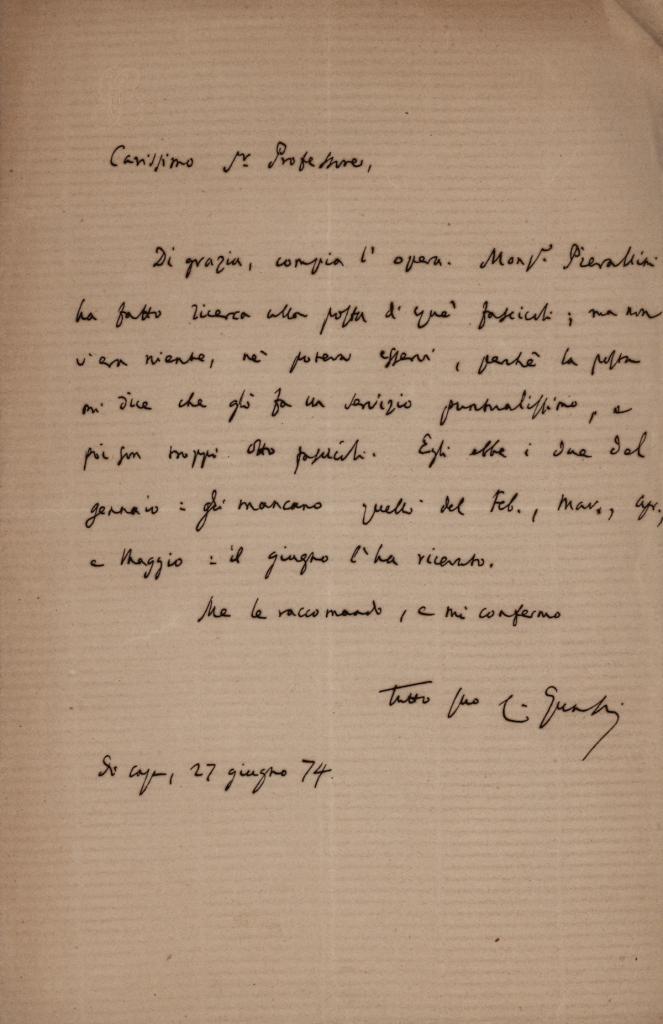 Carissimo Sr. Professore,
Di grazia, compia l'opera. Monsr. Pierallini
ha fatto ricerca alla posta di que' fascicoli; ma non
v'era niente, nè poteva esservi, perchè la posta
mi dice che gli fa un servizio puntualissimo, e
poi son troppi otto fascicoli. Egli ebbe i due del
gennaio: gli mancano quelli del Feb., Mar., Apr.,
e Maggio: il giugno l'ha ricevuto.
Me le raccomando, e mi confermo
Tutto suo C. Guasti
Di casa, 27 giugno 74.